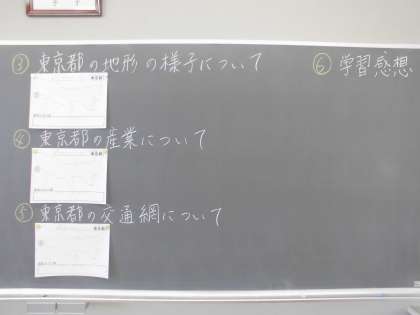 ③ 東京都の地形の様子について
④ 東京都の産業について
⑤ 東京都の交通網について
⑥ 学習感想